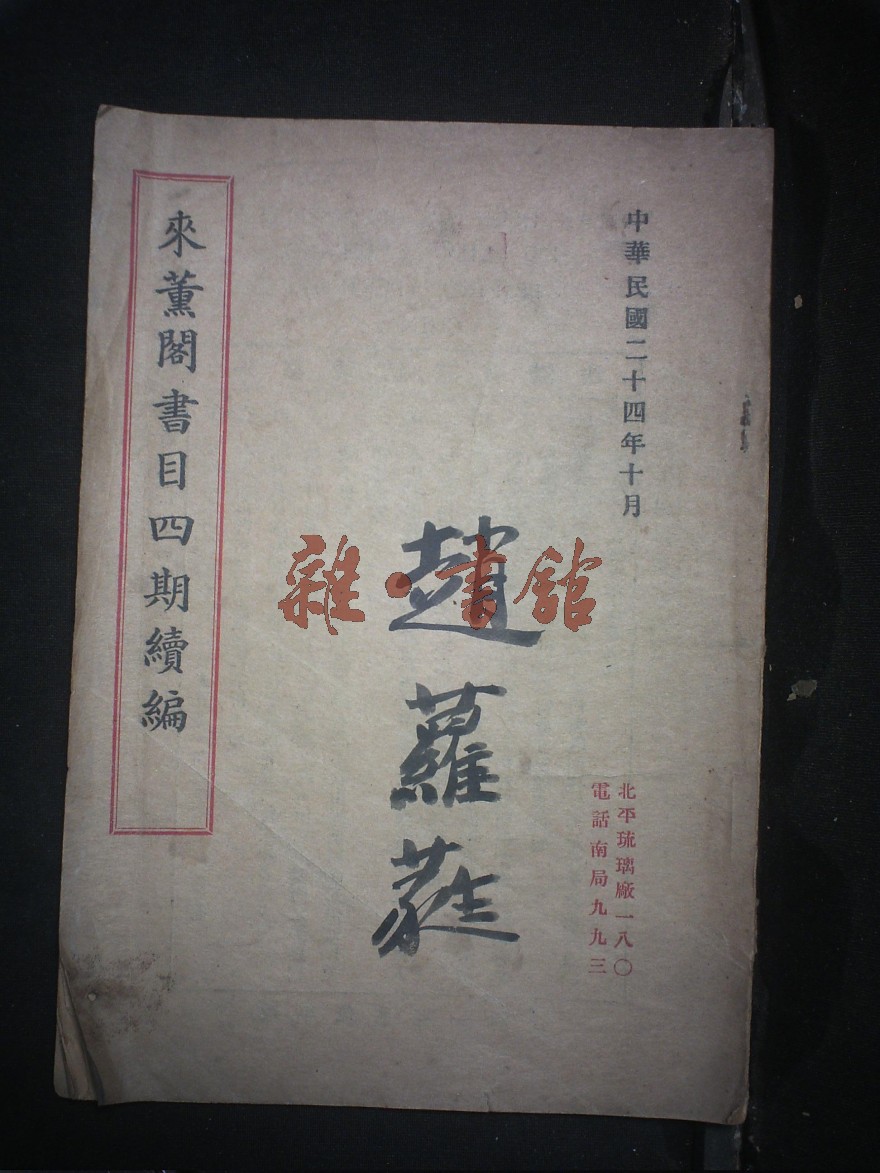 中華民國二十四年十月
北平琉璃廠一八〇
電話南局九九三
趙蘿蕤
來薰閣書目四期續編
雜·書館